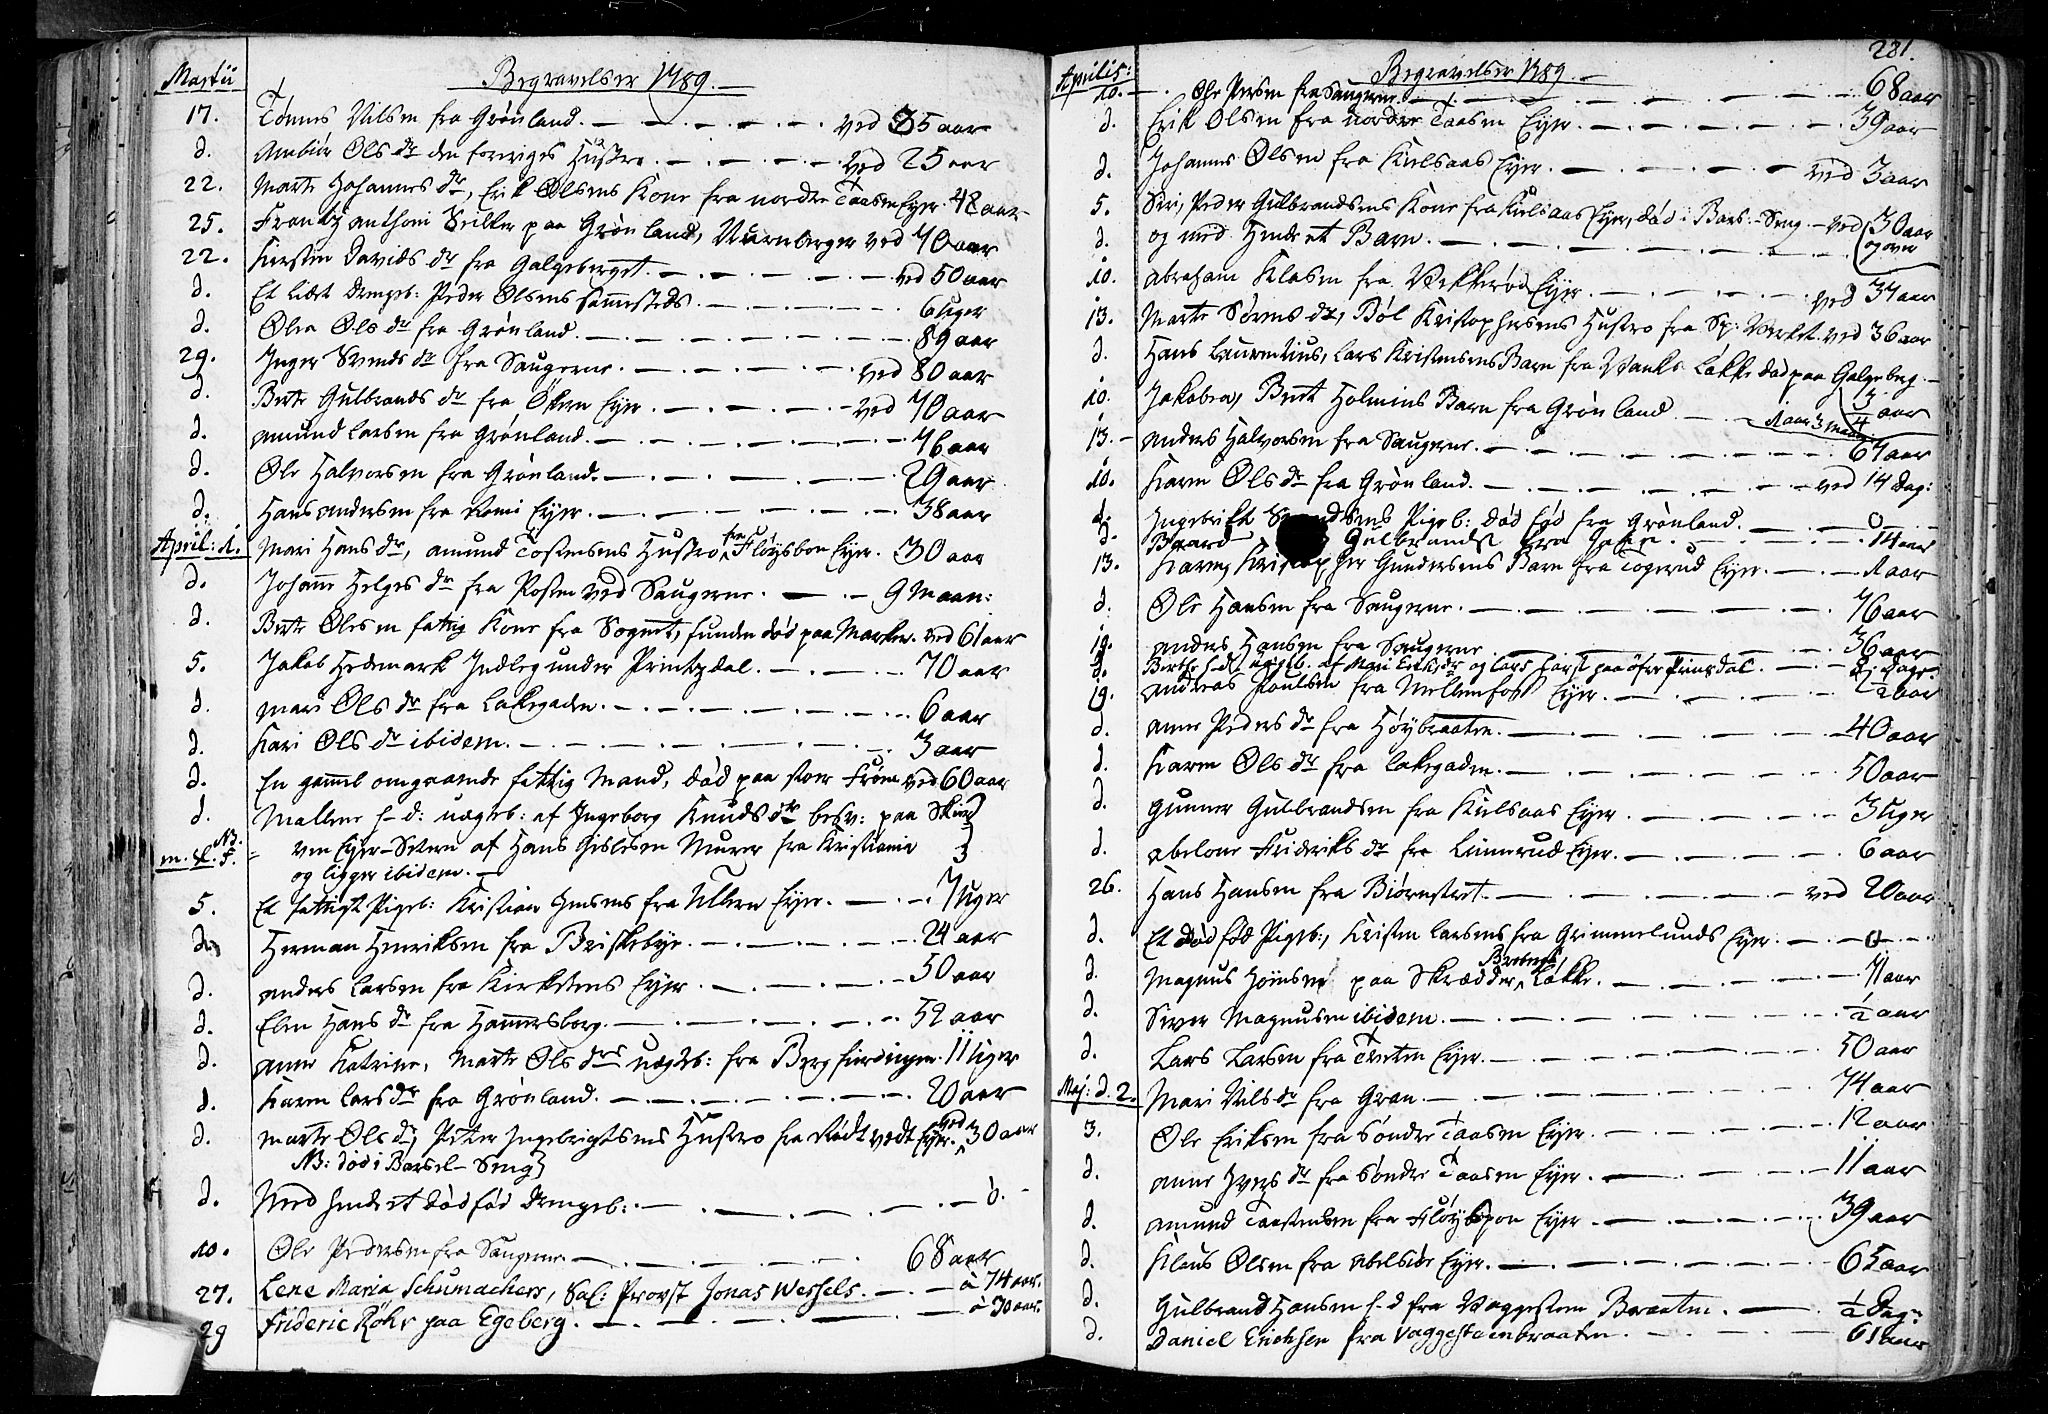 Martii
Begravelser 1789.
17. Tønnes Nilsen fra Grønland. ved 35 aar
d. Ols dr den forriges Hustro. ved 25 aar
22. Marte Johannes dr, Erik Olsens Kone fra nordre Taasen Eyer. 42 aar
25. Frantz Anthoni paa Grønland, Nürnberger ved 70 aar
22. Kirsten Davids dr fra Galgeberget. ved 50 aar
d. Et lidet Drengeb: Peder Olsens sammesteds. 6 Uger
d. Olea Ols dr fra Grønland. 89 aar
29. Inger Svends dr fra Saugerne. ved 80 aar
d. Berte Gulbrands dr fra Økern Eyer. ved 70 aar
d. Amund Larsen fra Grønland. 76 aar
d. Ole Halvorsen fra Grønland. 29 aar
d. Hans Andersen fra Eyer. 38 aar
April: 1. Mari Hans dr, Amund Tostensens Hustro fra Fløysbon Eyer. 30 aar
d. Johan Helges dr fra Posten ved Saugerne. 9 Maan:
d. Berte Olsen fattig Kone fra Sognet, funden død paa Marken. ved 61 aar
5. Jakob Hedemark Indleg under Printzdal. 70 aar
d. Mari Ols dr fra Lakegaden. 6 aar
d. Kari Ols dr ibidem. 3 aar
d. En gammel omgaaende fattig Mand, død paa stoer Frøen ved 60 aar
d. Mallene s-d: uægteb: af Ingeborg Knuds dr besv: paa
NB.
ven Eyer-Seteren af Hans Gislesen Murer fra Kristiania 3
og ligger ibidem.
5. Et fattigt Pigeb: Kristian Jensens fra Ullern Eyer. 7 Uger
d. Herman Henriksen fra Briskebye. 24 aar
d. Anders Larsen fra Eyer. 50 aar
d. Elen Hans dr fra Hammersborg. 52 aar
d. Anne Katrine, Marte Ols drs uægteb: fra Bergfierdingen. 11 Uger
d. Karen Lars dr fra Grønland. 20 aar
d. Marte Ols dr, Peter Ingebrigtsens Hustro fra Rødtvedt Eyer. ved 30 aar
NB: død i Barsel-Seng
d. Med hende et dødfød Drengeb: 0.
10. Ole Pedersen fra Saugerne 68 aar
27. Lene Maria Schumachers, Sal: Provst Jonas Wessels. a 74 aar.
29 Frideric Röhr paa Egeberg. a 30 aar.
231.
Aprilis:
Begravelser 1789.
10. Ole Persen fra Saugerne. 68 aar
d. Erik Olsen fra nordre Taasen Eyer. 39 aar
d. Johannes Olsen fra Kielsaas Eyer. ved 3 aar
5. Siri, Peder Gulbrandsens Kone fra Kielsaas Eyer, død i Bars:-Seng. ved 30 aar
d. og med Hende et Barn. og over
10. Abraham Klasen fra Vækkerøe Eyer. ved 37 aar
13. Marte Sørens dr, Bøl Kristophersens Hustro fra Sp: Verket ved 36 aar
d. Hans Laurentius, Lars Kristensens Barn fra Vanks Løkke død paa Galgeberg.
3/4 aar
10. Jakobea, Berit Holmens Barn fra Grønland 1 aar 3 maan
13. Anders Halvorsen fra Saugerne. 67 aar
10. Karen Ols dr fra Grønland. ved 14 Dag:
d. Pigeb: død fød fra Grønland. 0
d. Baard Gulbrands fra 14 aar
13. Karen, Kristopher Gundersens Barn fra Togerud Eyer. 1 aar
d. Ole Hansen fra Saugerne. 76 aar
19. Anders Hansen fra Saugerne 36 aar
d. Berthe uægteb. af Mari Eriks dr og Lars paa øfre Prinsdal. dage.
19. Andreas Poulsen fra Mellemfos Eyer. 1/2 aar
d. Anne Peders dr fra Høybraaten. 40 aar
d. Karen Ols dr fra Lakegaden. 50 aar
d. Gunner Gulbrandsen fra Kielsaas Eyer. 3 Uger
d. Abelone Frideriks dr fra Linnerud Eyer. 6 aar
26. Hans Hansen fra ved 20 aar
d. Et død fød Pigeb:, Kristen Larsens fra Grimmelunds Eyer. 0
d. Magnus paa Skrædder Løkke. 71 aar
d. Siver Magnusen ibidem. 1/2 aar
d. Lars Larsen fra Tveten Eyer. 50 aar
Maj: d. 2. Mari Nils dr fra Gran. 74 aar
3. Ole Eriksen fra søndre Taasen Eyer. 12 aar
d. Anne Ivers dr fra søndre Taasen Eyer. 11 aar
d. Amund Taastensen fra Fløysbon Eyer. 39 aar
d. Klaus Olsen fra Abelsøe Eyer. 65 aar
d. Gulbrand Hansen s-d fra Vaggesteen Braaten. 1/2 Dag:
d. Daniel Erichsen fra Vaggesteenbraaten. 61 aar